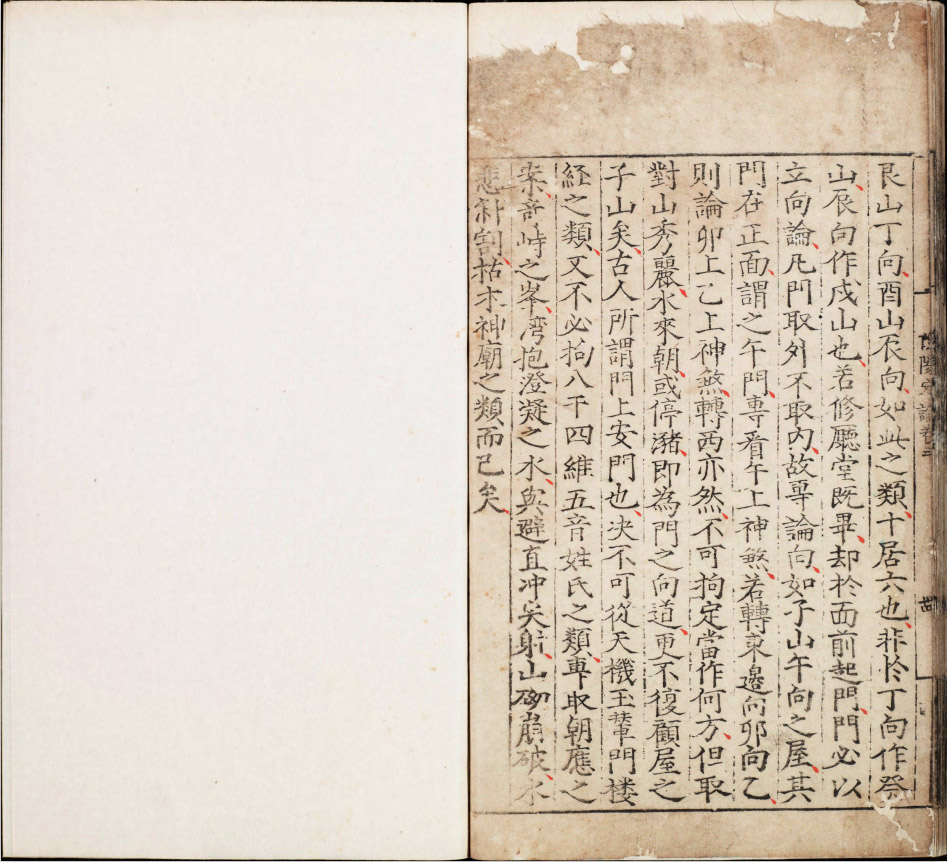 艮山丁向酉山辰向如此之類十居六也非於丁向作癸
山辰向作戍山也若修廳堂既畢却於面前起門門必以
立向論凡門取外不取內故專論向如子山午向之屋其
門在正面謂之午門專看午上神煞若轉東邊向卯向乙
則論卯上乙上神煞轉西亦然不可拘定當作何方但取
對山秀麗水來朝或停瀦即為門之向道更不復顧屋之
子山矣古人所謂門上安門也决不可從天機玉輦門楼
経之類又不必拘八干四維五音姓氏之類專取朝應之
案竒峙之峯湾抱澄凝之水與避直冲尖射山砂崩破水
悲斜割枯木神廟之類而已矣
陰陽定論卷三